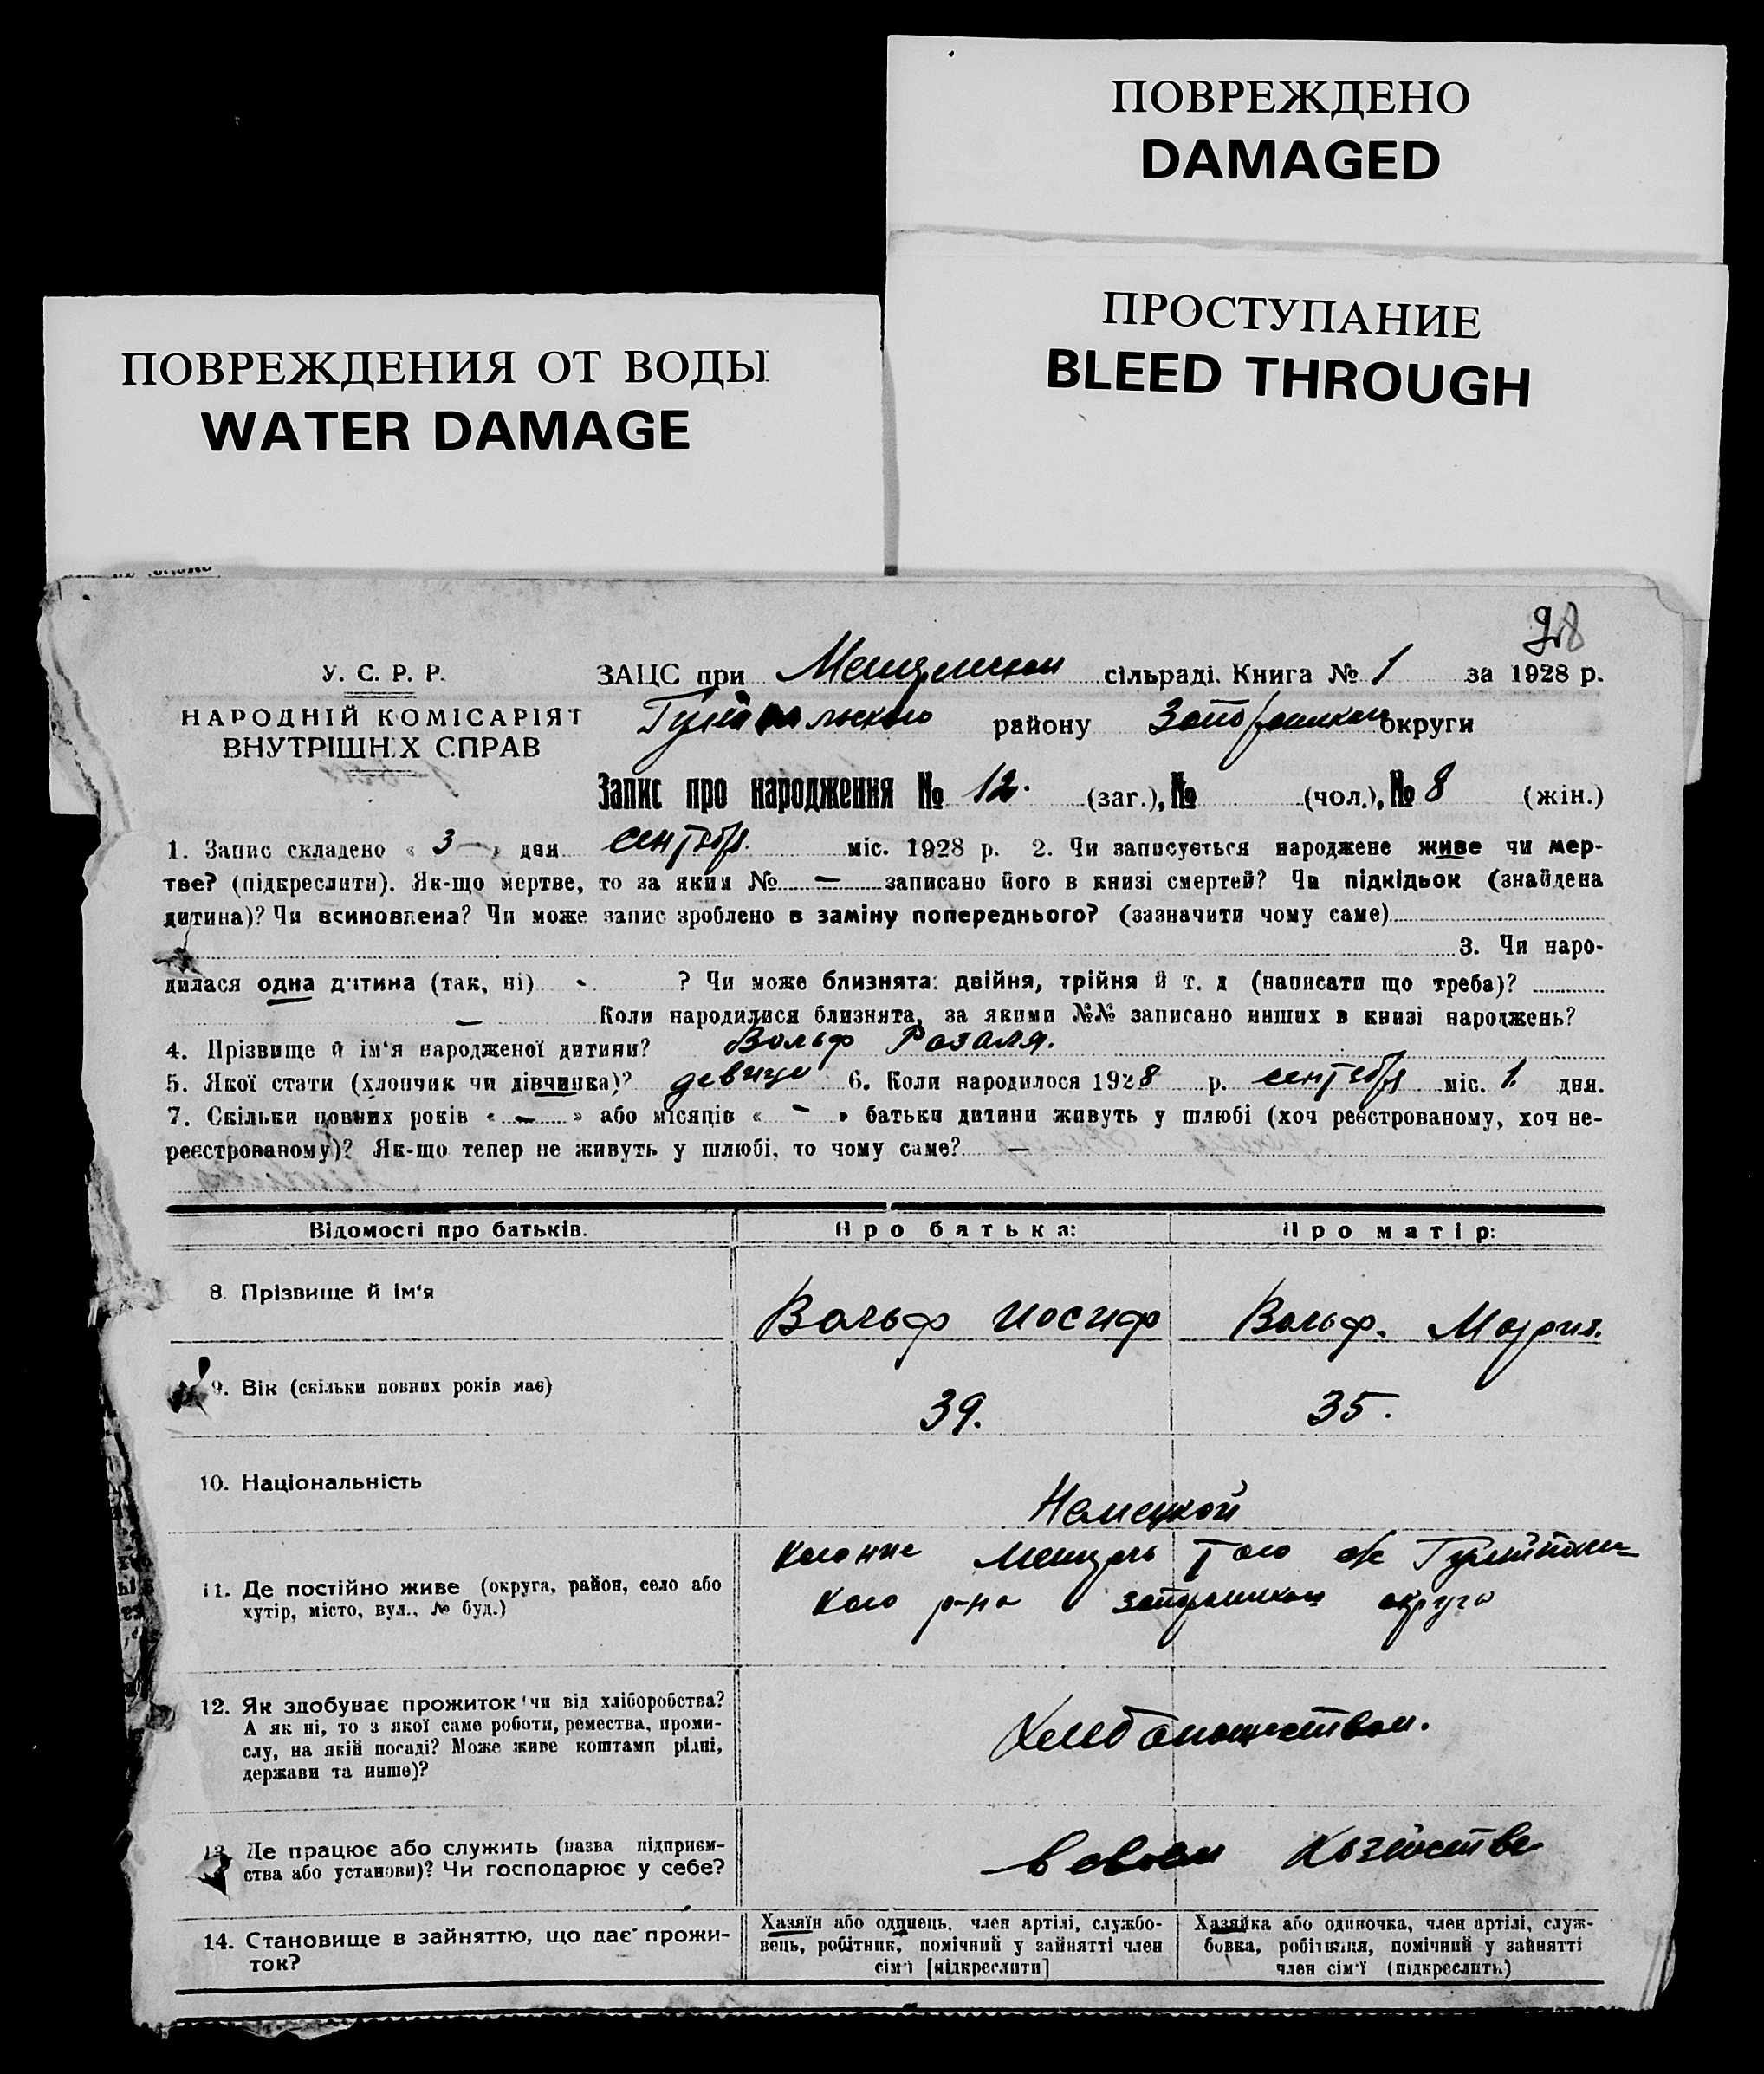 ПОВРЕЖДЕНО
DAMAGED
ПРОСТУПАНИЕ
BLEED THROUGH
ПОВРЕЖДЕНИЯ ОТ ВОДЫ
WATER DAMAGE
У. С. Р. Р.
НАРОДНІЙ КОМІСАРІЯТ
ВНУТРІШНІХ СПРАВ
ЗАЦС при сільраді. Книга № 1 за 1928 р.
району округи
Запис про народження № 12. (заг.), № (чол.), № 8 (жін.)
1. Запис складено « 3 — » дня сентябр. міс. 1928 р. 2. Чи записується народжене живе чи мер-
тве? (підкреслити). Як-що мертве, то за яким № — записано його в книзі смертей? Чи підкідьок (знайдена
дитина)? Чи всиновлена? Чи може запис зроблено в заміну попереднього? (зазначити чому саме)
3. Чи наро-
дилася одна дитина (так, ні) - ? Чи може близнята: двійня, трійня й т. д (написати що треба)?
— Коли народилися близнята, за якими №№ записано инших в книзі народжень?
4. Прізвище й ім'я народженої дитини? Вольф Розаля.
5. Якої статі (хлопчик чи дівчинка)? девица 6. Коли народилося 1928 р. сентябр міс. 1. дня.
7. Скільки повних років « — » або місяців « - » батьки дитини живуть у шлюбі (хоч реєстрованому, хоч не-
реєстрованому)? Як-що тепер не живуть у шлюбі, то чому саме? —
Відомості про батьків.
Про батька:
Про матір:
8. Прізвище й ім'я
Вольф Иосиф
Вольф. Мария.
9. Вік (скільки повних років має)
39.
35.
10. Національність
Немецкой
11. Де постійно живе (округа, район, село або
хутір, місто, вул., № буд.)
того же
кого р-на округа
12. Як здобуває прожиток чи від хліборобства?
А як ні, то з якої саме роботи, ремества, проми-
слу, на якій посаді? Може живе коштами рідні,
держави та инше)?
Хлебопашеством.
13. Де працює або служить (назва підприєм-
ства або установи)? Чи господарює у себе?
в своем хозействе
14. Становище в зайняттю, що дає прожи-
ток?
Хазяїн або одинець, член артілі, службо-
вець, робітник, помічний у зайнятті член
сім'ї [підкреслити]
Хазяйка або одиночка, член артілі, служ-
бовка, робітниця, помічний у зайнятті
член сім'ї (підкреслить)